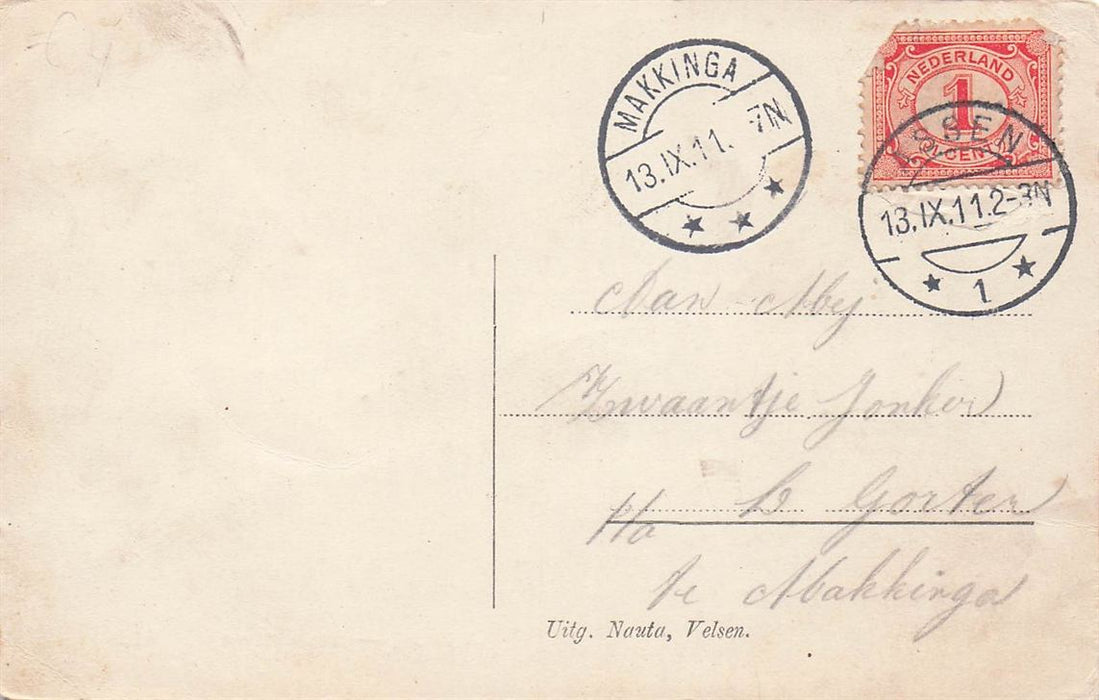 MAKKINGA
13.IX.11. 7N
NEDERLAND
1
CENT
SSEN
13.IX.11.2-3N
1
Aan Mej
Zwaantje Jonker
p/a
Gorter
te Makkinga
Uitg. Nauta, Velsen.